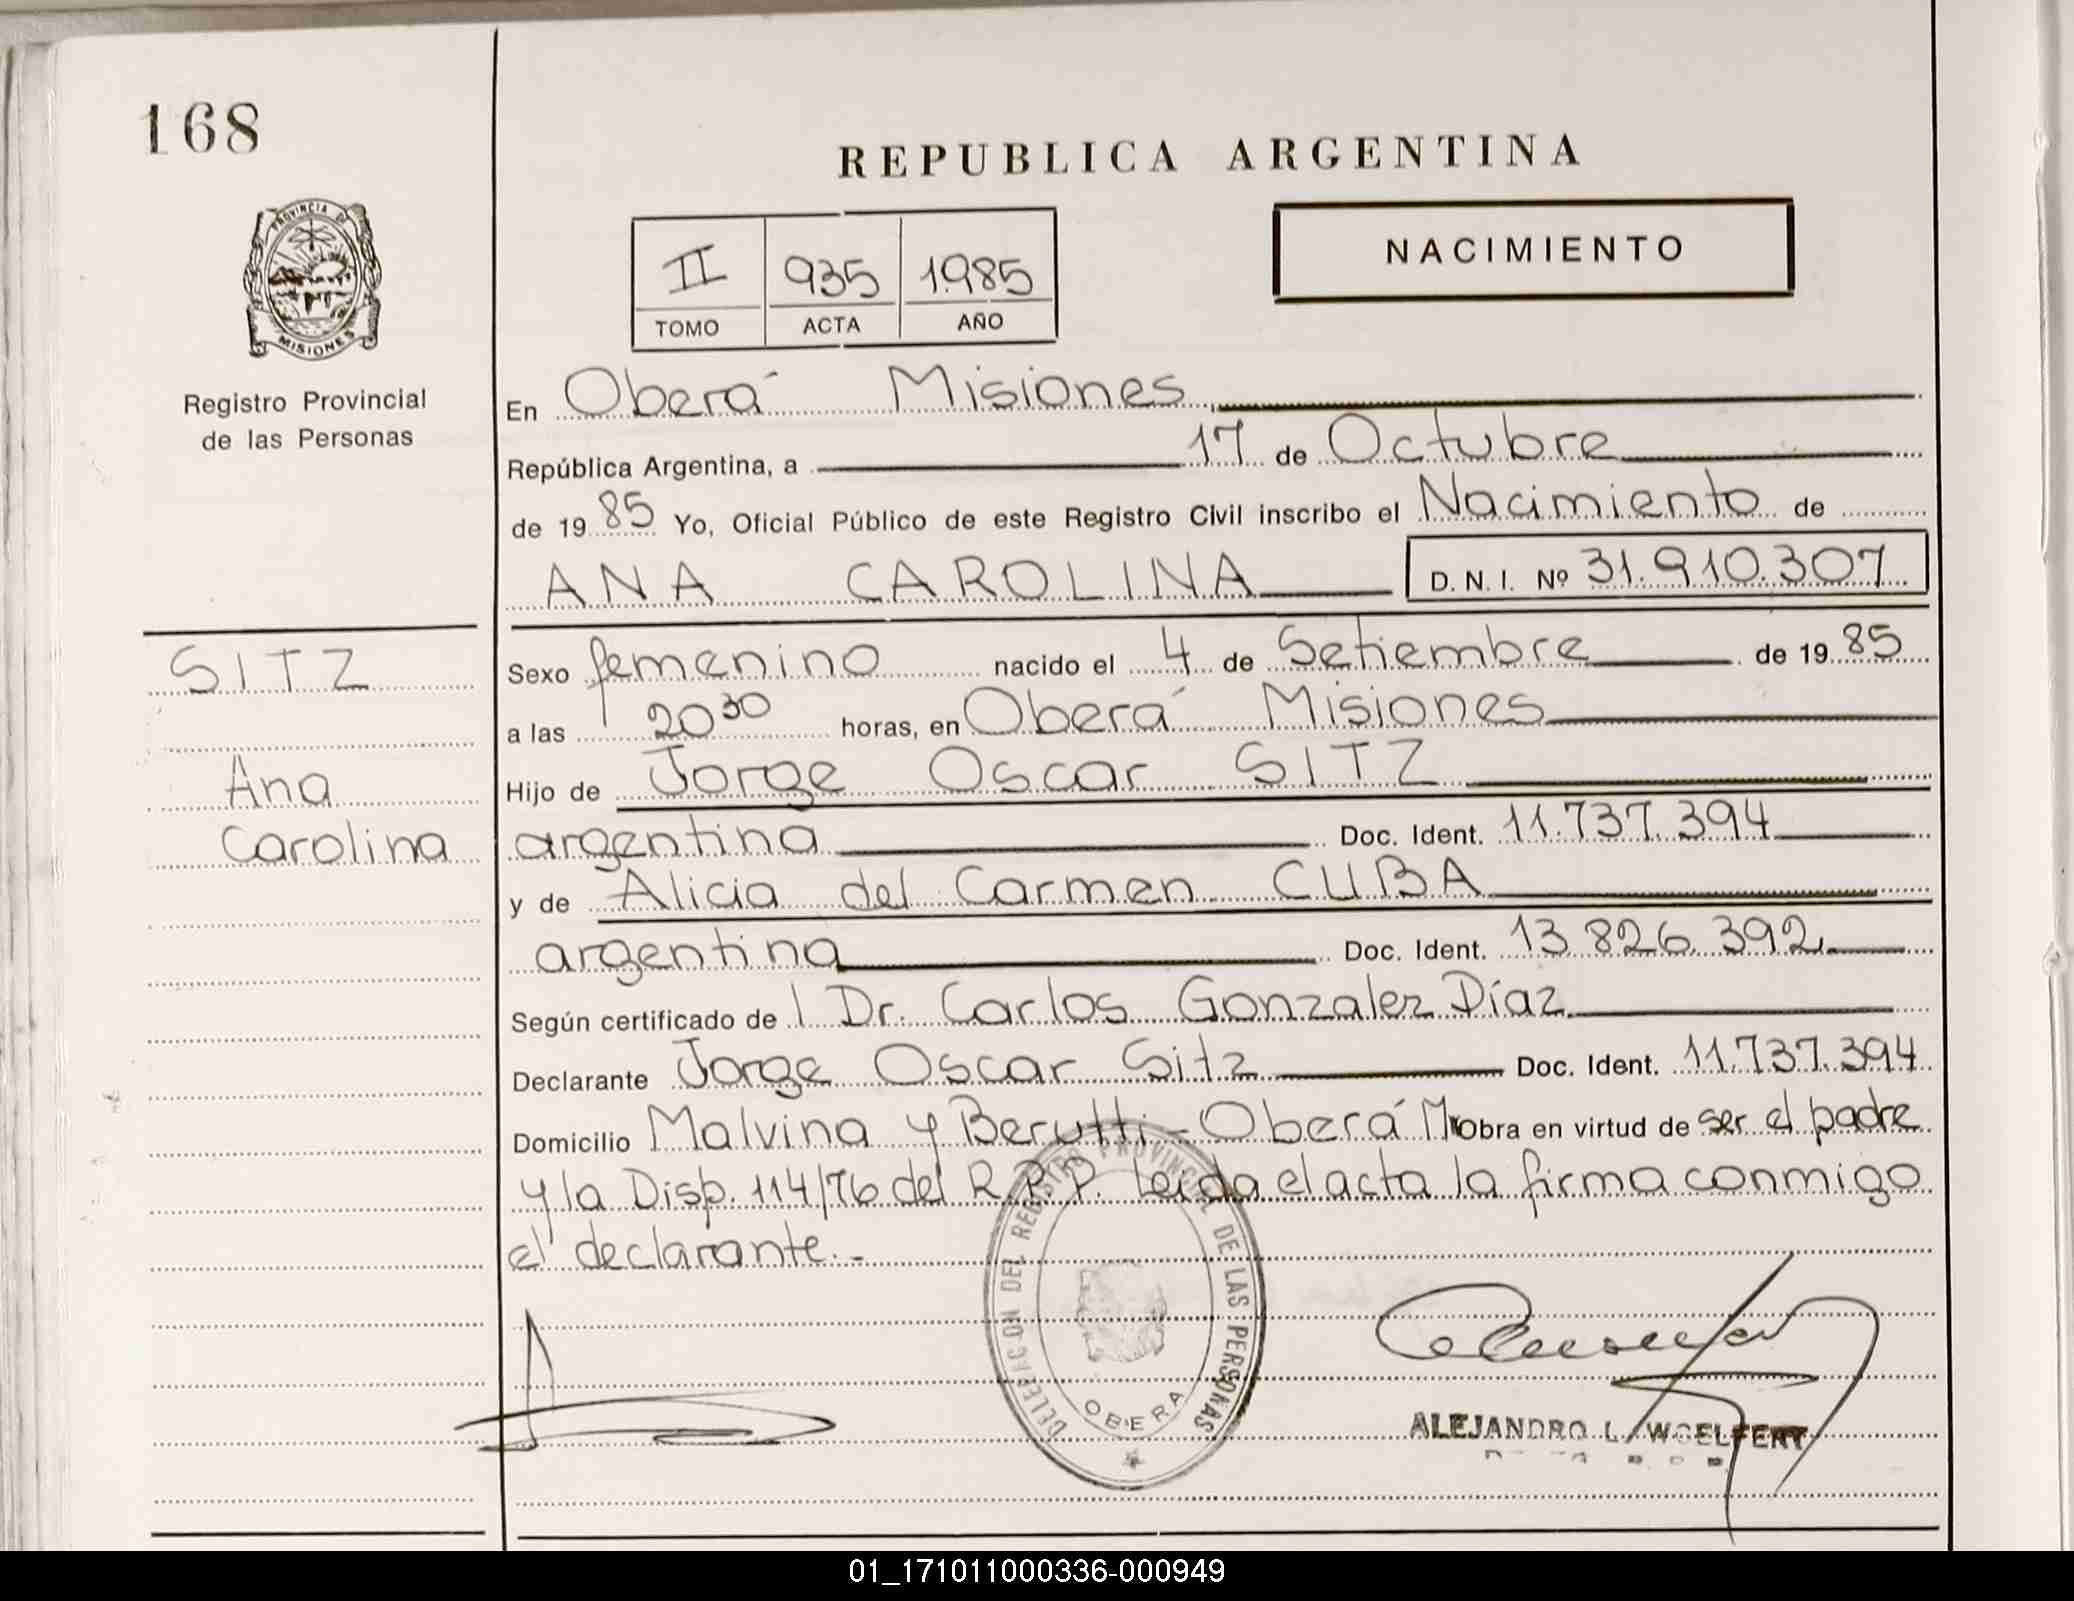 168
REPUBLICA ARGENTINA
PROVINCIA DE
MISIONES
II 935 1985
TOMO ACTA AÑO
NACIMIENTO
Registro Provincial
de las Personas
En Oberá Misiones
República Argentina, a 17 de Octubre
de 1985 Yo, Oficial Público de este Registro Civil inscribo el Nacimiento de
ANA CAROLINA D. N. I. Nº 31.910.307
SITZ
Ana
Carolina
Sexo femenino nacido el 4 de Setiembre de 1985
a las 20 30 horas, en Oberá Misiones
Hijo de Jorge Oscar SITZ
argentina Doc. Ident. 11.737.394
y de Alicia del Carmen CUBA
argentina Doc. Ident. 13.826.392
Según certificado de l Dr. Carlos Gonzalez Díaz
Declarante Jorge Oscar Sitz Doc. Ident. 11.737.394
Domicilio Malvina y Berutti - Oberá Mobra en virtud de ser el padre
y la Disp. 114/76 del R.P.P. Leida el acta la firma conmigo
el declarante.-
DELEGACION DEL REGISTRO PROVINCIAL DE LAS PERSONAS
OBERA
ALEJANDRO L. WOELFERT
01_171011000336-000949